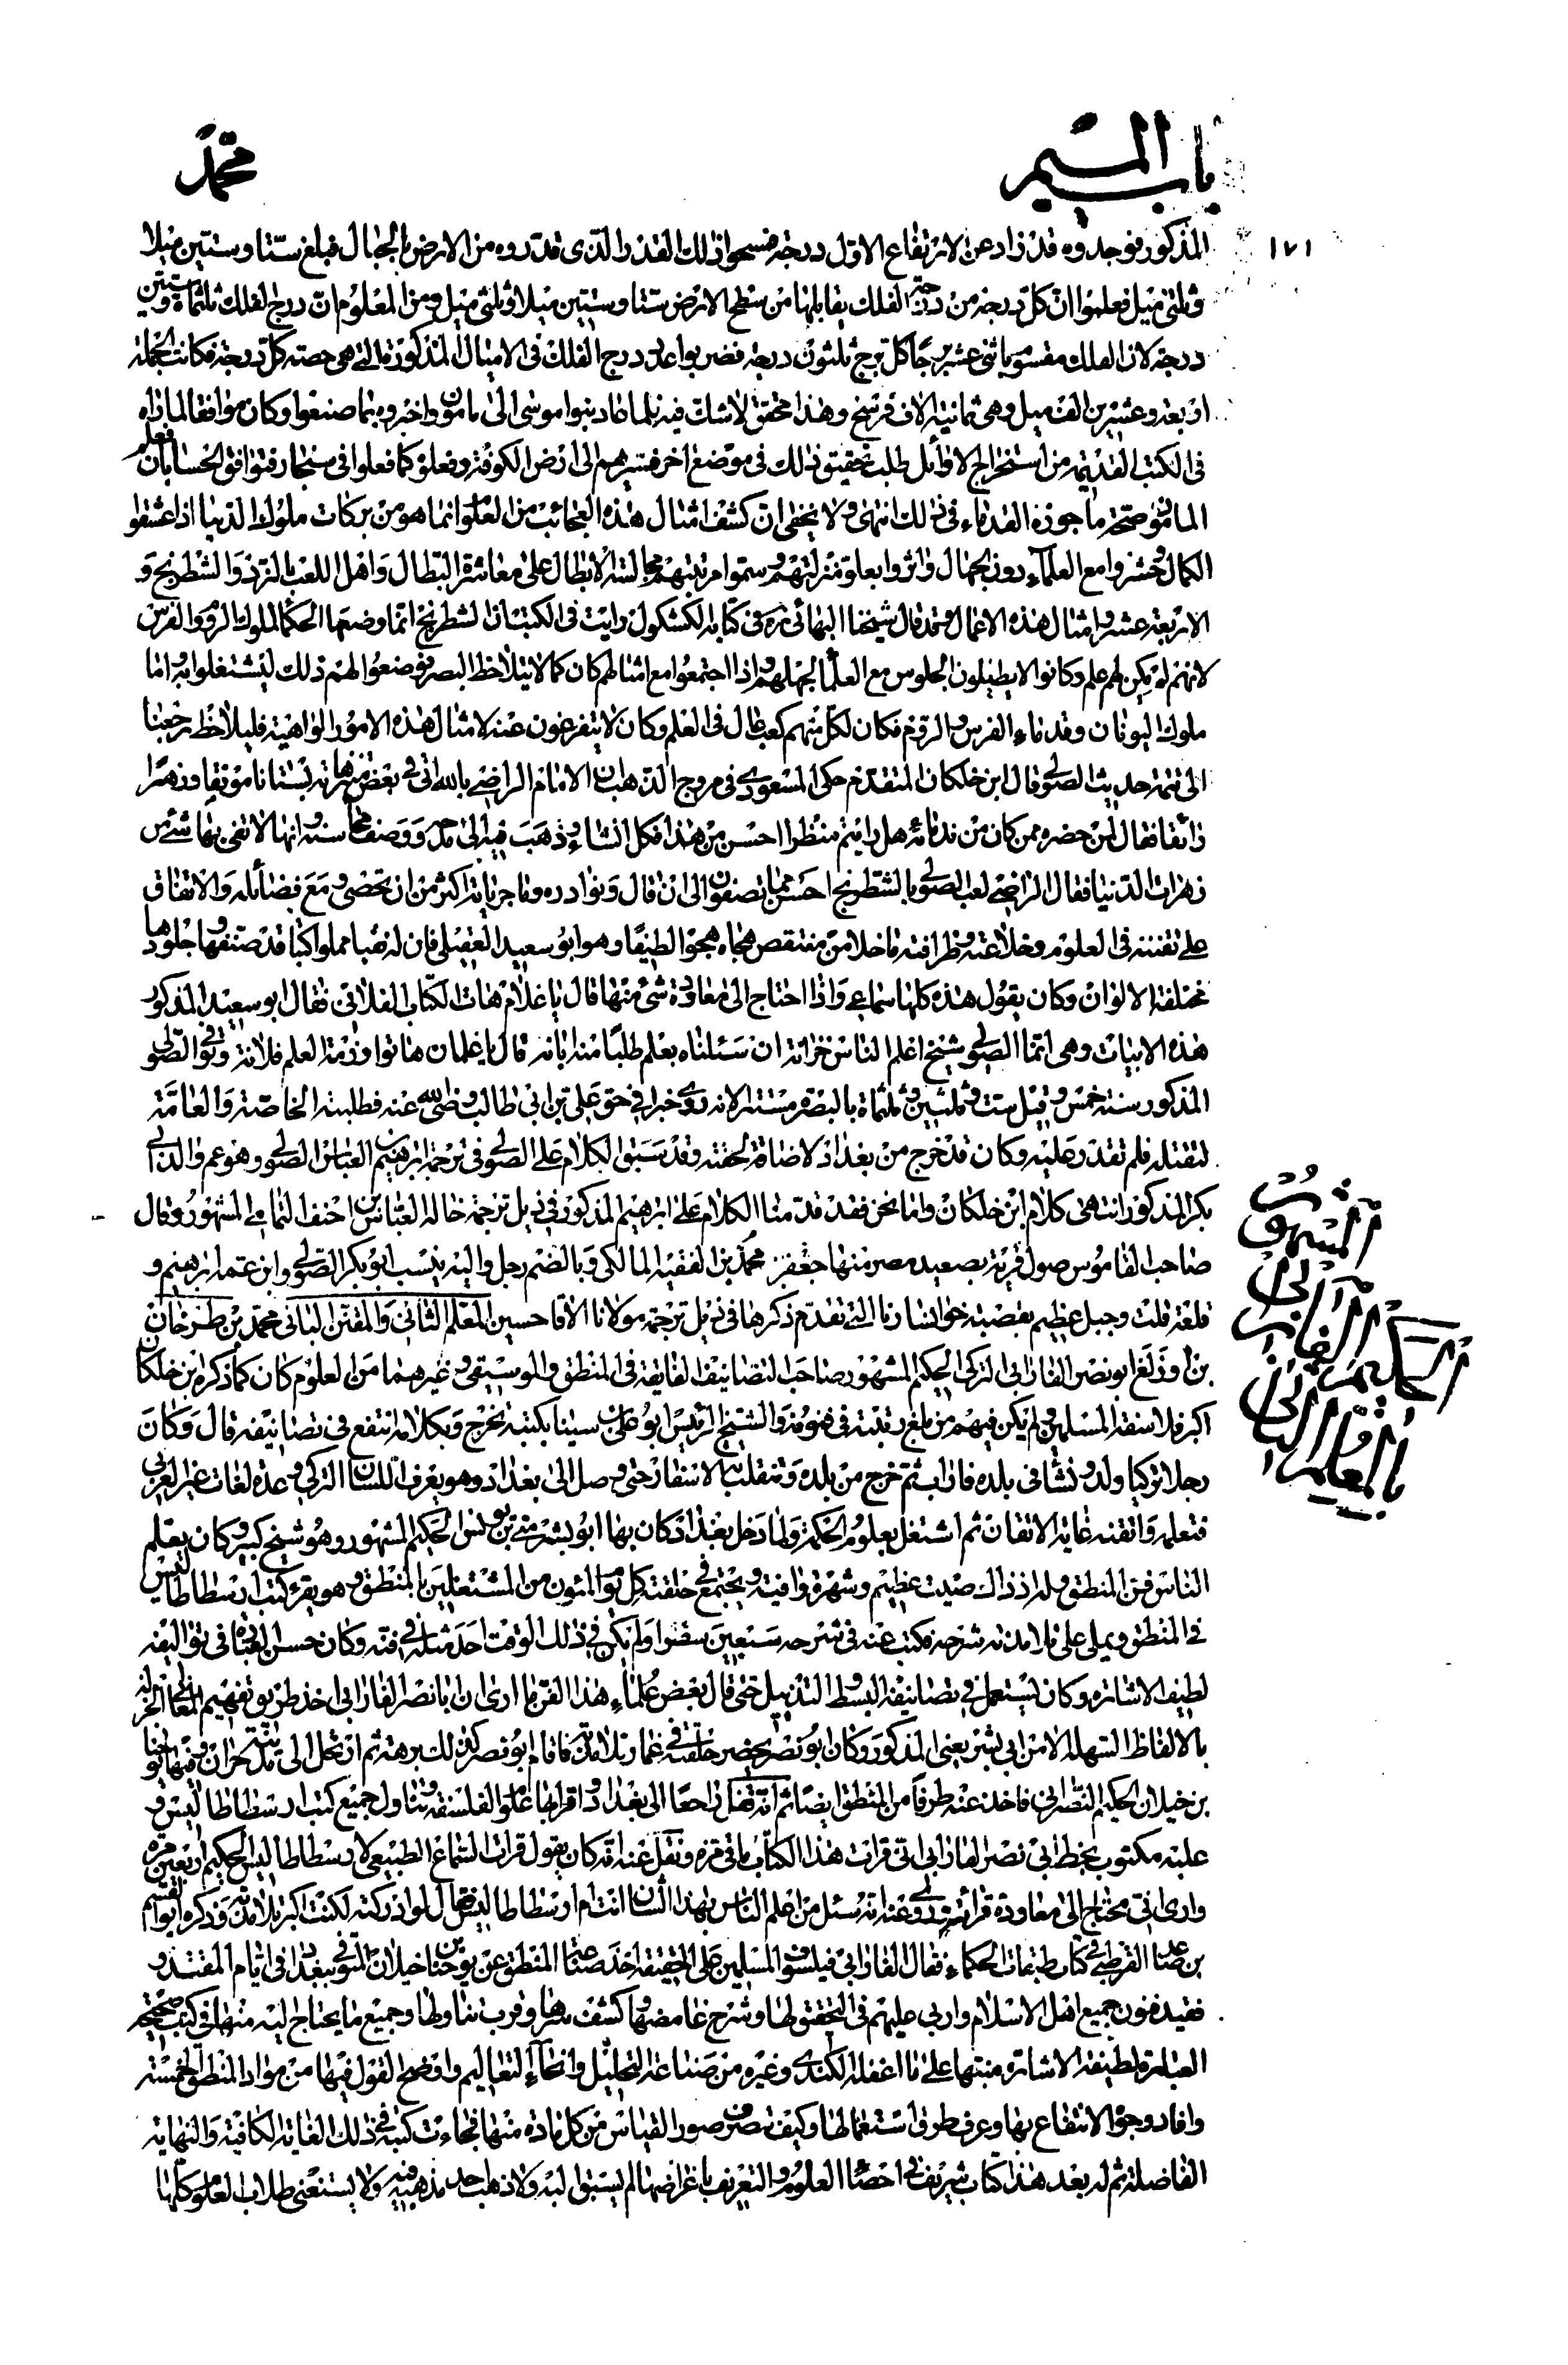 باب الميم
محمد
١٧١
المذكور فوجدوه قد زاد عن الارتفاع الاول درجة فمسحوا ذلك القدر الذى قدروه من الارض بالحبال فبلغ ستّا وستّين ميلا
وثلثى ميل فعلموا انّ كلّ درجة من درجة الفلك يقابلها من سطح الارض ستّا وستين ميلا وثلثى ميل ومن المعلوم انّ درج الفلك ثلثماة وستين
درجة لان الفلك مقسوم باثنى عشر برجا كل برج ثلثون درجة فضربوا عدد درج الفلك فى الاميال المذكورة الّتى هى حصته كلّ درجة فكانت الجملة
اربعة وعشرين الف ميل وهى ثمانية الاف فرسخ وهذا محقق لا شك فيه فلما عاد بنوا موسى الى مامون واخبروه بما صنعوا وكان موافقا لما راه
فى الكتب القديمة من استخراج الاوائل طلب تحقيق ذلك فى موضع اخر فسيرهم الى ارض الكوفة وفعلوا كما فعلوا فى سنجار فتوافق الحسابان فعلم
المامون صحّة ما حوزه القدماء فى ذلك انتهى ولا يخفى انّ كشف امثال هذه العجائب من العلوم انما هو من بركات ملوك الدنيا اذا عشقوا
الكمال وحشروا مع العلماء دون الجهال واثروا بعلوّ منزلتهم وسموّ مرتبتهم مجالسة الابطال على معاشرة البطال واهل اللعب بالنرد والشطرنج و
الاربعة عشر وامثال هذه الاعمال وقد قال شيخنا البهائى ره فى كتابه الكشكول رايت فى الكتب انّ الشطرنج انّما وضعها الحكماء لملوك الروم والفرس
لانهم لم يكن لهم علم وكانوا لا يطيلون الجلوس مع العلماء لجهلهم واذا اجتمعوا مع امثالهم كان كما لا يتلاحظ البصر فوضعوا لهم ذلك ليشتغلوا به واما
ملوك اليونان وقدماء الفرس والروم فكان لكلّ منهم كعب عال فى العلم وكان لا يتفرغون عنه لامثال هذه الامور الواهية فليلاحظ رجعنا
الى تتمة حديث الصولى قال ابن خلكان المتقدم حكى المسعودى فى مروج الذهب ان الامام الراضى بالله اتى فى بعض منزهاته بستانا مونقا وزهرا
رائقا فقال لمن حضره ممن كان من ندمائه هل رايتم منظرا احسن من هذا فكل انشاء وذهب فيه الى مدحه ووصف محاسنه وانها لا تفى بها شئ من
زهرات الدنيا فقال الراضى لعب الصولى بالشطرنج احسن مما تصفون الى ان قال ونوادره وماجرياته اكثر من ان تحصى ومع فضائله والاتفاق
على تفننه فى العلوم وخلاعته وظرافته ما خلا من منتقص هجاه هجوا لطيفا وهو ابو سعيد العقيلى فان له خبا مملوا كتبا قد صنّفها وجلودها
مختلفة الالوان وكان يقول هذه كلها سماعى واذا احتاج الى معاودة شئ منها قال يا غلام هات الكتاب الفلانىّ فقال ابو سعيد المذكور
هذه الابيات وهى انّما الصولى شيخ اعلم الناس خزانه ان سئلناه بعلم طلبًا منه ابانه قال يا غلمان هاتوا رزمة العلم فلانه وتوفى الصّولى
المذكور سنة خمس وقيل ست وثلثين وثلثماة بالبصرة مستترا لانه روى خبرا فى حق على بن ابى طالب رضى الله عنه فطلبته الخاصّة والعامّة
لتقتله فلم تقدر عليه وكان قد خرج من بغداد لاضاقة لحقته وقد سبق الكلام على الصولى فى ترجمة ابرهيم بن العباس الصولى وهو عم والد ابى
بكر المذكور انتهى كلام ابن خلكان واما نحن فقد قدّمنا الكلام على ابرهيم المذكور فى ذيل ترجمة خاله العباس بن احنف اليمامى المشهور وقال
صاحب القاموس صول قرية بصعيد مصر منها جعفر بن محمد بن الفقيه المالكى وبالضم رجل واليه ينسب ابو بكر الصولى وابن عمه ابرهيم و
قلعة قلت وجبل عظيم بقصبة خوانسارنا الّتى تقدم ذكرها فى ذيل ترجمة مولانا الاقا حسين المعلم الثانى والمقنن البانى محمّد بن طرخان
بن اوزلغ ابو نصر الفارابى التركى الحكيم المشهور صاحب التصانيف الفايقة فى المنطق والموسيقى وغيرهما من العلوم كان كما ذكره ابن خلكان
اكبر فلاسفة المسلمين ولم يكن فيهم من بلغ رتبته فى فنونه والشيخ الرئيس ابو على بن سينا بكتبه تخرج وبكلامه انتفع فى تصانيفه قال وكان
رجلا تركيا ولد ونشا فى بلده فاراب ثم خرج من بلده وتنقلت به الاسفار حتى وصل الى بغداد وهو يعرف اللسان التركى وعدة لغات غير العربى
فتعلمه واتقنه غاية الاتقان ثم اشتغل بعلوم الحكمة ولما دخل بغداد كان بها ابو بشر متى بن يونس الحكيم المشهور وهو شيخ كبير وكان يعلم
الناس فن المنطق وله اذ ذاك صيت عظيم وشهرة وافية ويجتمع فى حلقته كل يوم المئون من المشتغلين بالمنطق وهو يقرء كتب ارسطاطاليس
فى المنطق ويملى على تلامذته شرحه فكتب عنه فى شرحه سبعين سفرا ولم يكن فى ذلك الوقت احد مثله فى فنّه وكان حسن العبارة فى تواليفه
لطيف الاشارة وكان يستعمل فى تصانيفه البسط والتذييل حتى قال بعض علماء هذا الفن ما ارى ان ابا نصر الفارابى اخذ طريق تفهيم المعانى الجزلة
بالالفاظ السهلة الا من ابى بشر يعنى المذكور وكان ابو نصر يحضر حلقته فى غمار تلامذته فاقام ابو نصر كذلك برهة ثم ارتحل الى مدينة حرّان وفيها يوحنا
بن خيلان الحكيم النصرانى فاخذ عنه طرفا من المنطق ايضا ثم انّه قفل راجعا الى بغداد وقرا بها علوم الفلسفة وتناول جميع كتب ارسطاطاليس و
عليه مكتوب بخط ابى نصر الفارابى انّى قرات هذا الكتاب ماتى مرة ونقل عنه انّه كان يقول قرات السّماع الطبيعى لارسطاطاليس الحكيم اربعين مرة
وارى انّى محتاج الى معاودة قرائته وروى عنه انه سئل من اعلم الناس بهذا الشان انت ام ارسطاطاليس فقال لو ادركته لكنت اكبر تلامذته وذكره ابو القسم
بن صاعد القرطبى فى كتاب طبقات الحكماء فقال الفارابى فيلسوف المسلمين على الحقيقة اخذ صناعة المنطق عن يوحنا بن خيلان المتوفى ببغداد فى ايام المقتدر و
فقيد فنون جميع اهل الاسلام واربى عليهم فى التحقق لها وشرح غامضها وكشف سرها وقرب تناولها وجميع ما يحتاج اليه منها فى كتب صحيحة
العبارة لطيفة الاشارة منبها على ما اغفله الكندى وغيره من صناعة التحليل وانحاء التعاليم واوضح القول فيها من مواد المنطق الخمسة
وافاد وجوه الانتفاع بها وعرف طرق استعمالها وكيف تصرف صور القياس من كل مادة منها فجاءت كتبه فى ذلك الغاية الكافية والنهاية
الفاضلة ثم له بعد هذا كتاب شريف فى احصاء العلوم والتعريف باغراضها لم يسبق اليه ولا ذهب احد مذهبه فيه ولا يستغنى طلاب العلوم كلها
الحكيم الفارابى المشهور
بالمعلم الثانى